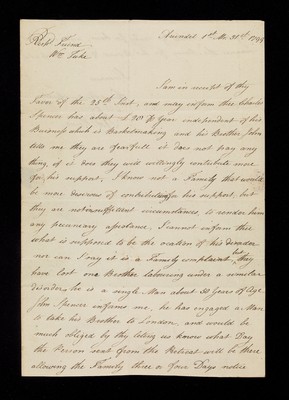 Arundel 1st. Mo. 31st. 1798
Respd. Friend
Wm. Tuke
I am in receipt of thy
Favor of the 25th Inst, and may inform thee Charles
Spencer has about £20 Year independent of his
Business which is Basketmaking and his Brother John
tells me they are fearfull it does not pay any
thing, if it does they will willingly contribute more
for his support, I know not a Family that would
be more desirous of contributing for his support, but
they are not in sufficient circumstances to render him
any pecuniary assistance, I cannot inform thee
what is supposed to be the of his disorder
nor can I say it is a Family complaint but they
have lost one Brother labouring under a similar
disorder, he is a single Man about 30 Years of Age
John Spencer informs me, he has engaged a Man
to take his Brother to London, and would be
much obliged by thy letting us know what Day
the Person sent from the Retreat will be there
allowing the Family three or four Days notice